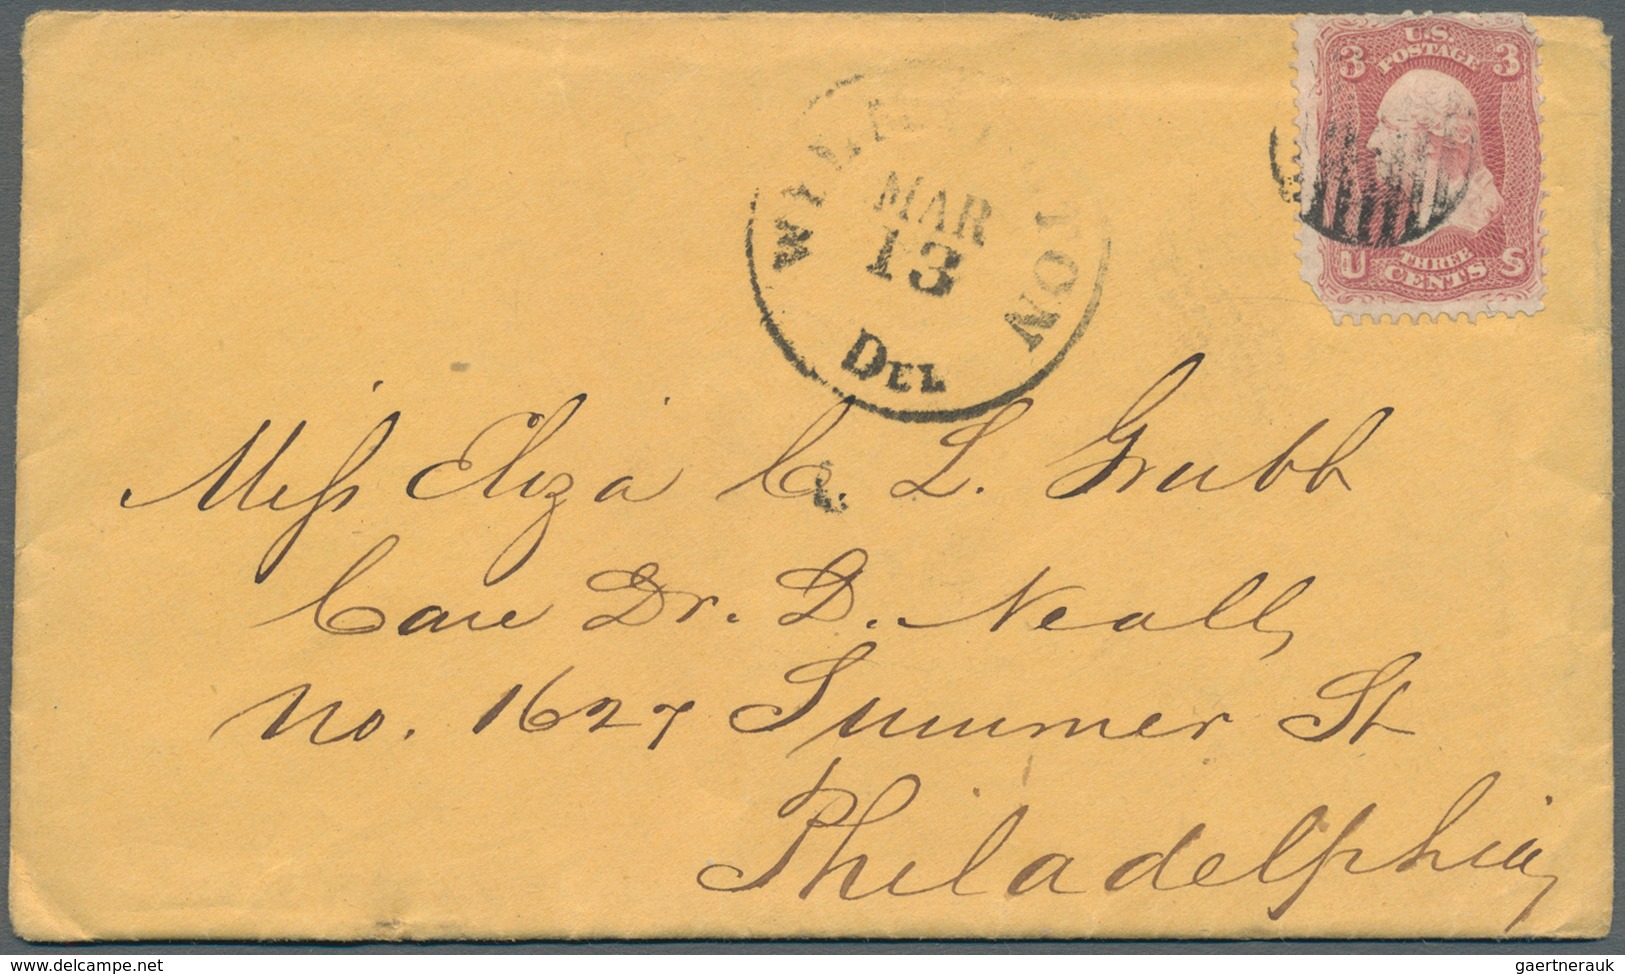 U.S.
POSTAGE
3 3
THREE
CENTS
U S
WILMINGTON
MAR
13
DEL
Miss Eliza C. L. Grubb
Care Dr. D. Neall,
No. 1627 Summer St
Philadelphia,
delcampe.net
gaertnerauk